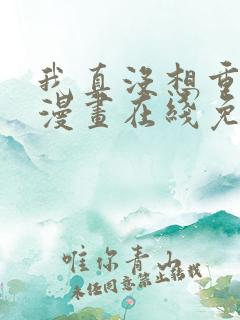 我真没想重
漫畫在綫免
唯你青山
未经同意禁止转载